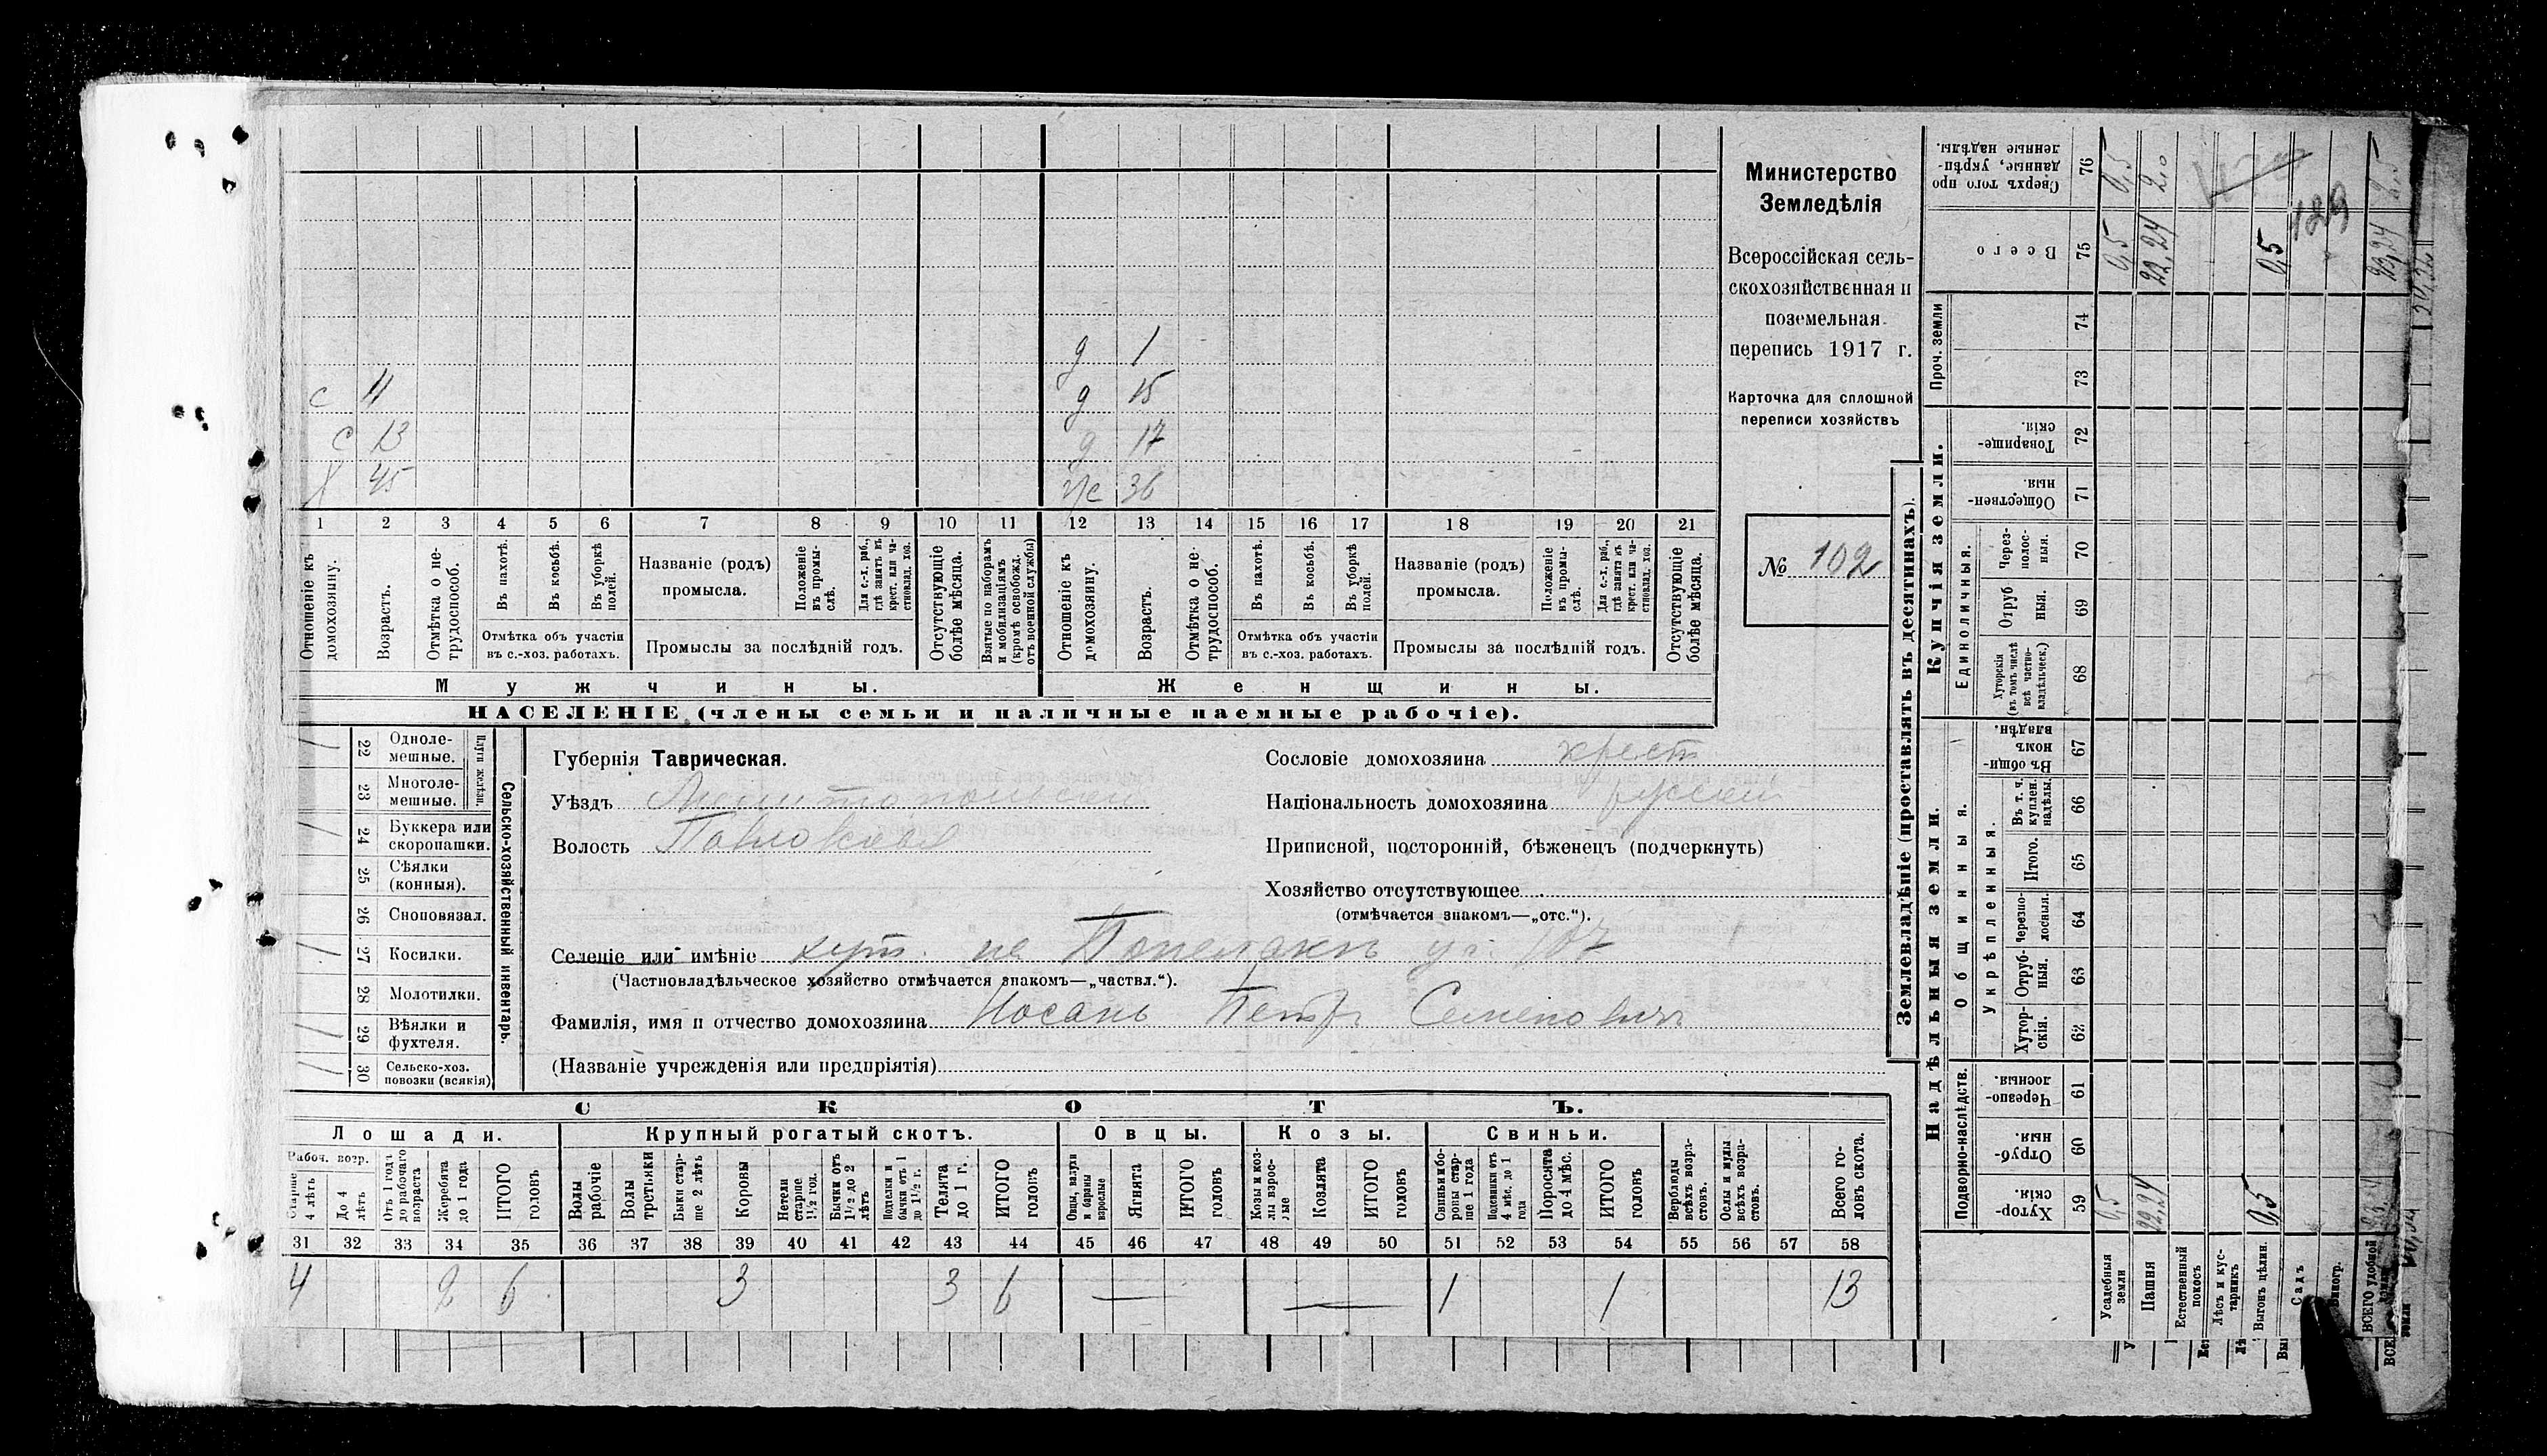 Министерство
Земледѣлія
Всероссійская сель-
скохозяйственная и
поземельная
перепись 1917 г.
Карточка для сплошной
переписи хозяйствъ
№ 102
д 1
с 11 д 15
с 13 д 17
х 45 ж 36
1 2 3 4 5 6 7 8 9 10 11 12 13 14 15 16 17 18 19 20 21
Отношеніе къ домохозяину.
Возрастъ.
Отмѣтка о не-трудоспособ.
Въ пахотѣ.
Въ косьбѣ.
Въ уборкѣ полей.
Отмѣтка объ участіи
въ с.-хоз. работахъ.
Названіе (родъ)
промысла.
Положеніе въ промы-слѣ.
Для с.-х. раб., гдѣ занятъ въ крест. или ча-стновлад. хоз.
Промыслы за послѣдній годъ.
Отсутствующіе болѣе мѣсяца.
Взятые по наборамъ и мобилизаціямъ (кромѣ освобожд. отъ военной службы)
Отношеніе къ домохозяину.
Возрастъ.
Отмѣтка о не-трудоспособ.
Въ пахотѣ.
Въ косьбѣ.
Въ уборкѣ полей.
Отмѣтка объ участіи
въ с.-хоз. работахъ.
Названіе (родъ)
промысла.
Положеніе въ промы-слѣ.
Для с.-х. раб., гдѣ занята въ крест. или ча-стновлад. хоз.
Промыслы за послѣдній годъ.
Отсутствующіе болѣе мѣсяца.
Мужчины. Женщины.
НАСЕЛЕНІЕ (члены семьи и наличные наемные рабочіе).
Сельско-хозяйственный инвентарь.
Плуги желѣзн.
22 Одноле-мешные.
23 Многоле-мешные.
24 Буккера или скоропашки.
25 Сѣялки (конныя).
26 Сноповязал.
27 Косилки.
28 Молотилки.
29 Вѣялки и фухтеля.
30 Сельско-хоз. повозки (всякія)
Губернія Таврическая.
Уѣздъ Мелитопольскій
Волость Павловская
Сословіе домохозяина крест
Національность домохозяина русскій
Приписной, посторонній, бѣженецъ (подчеркнуть)
Хозяйство отсутствующее
(отмѣчается знакомъ—„отс.“).
Селеніе или имѣніе хут. уч. 107
(Частновладѣльческое хозяйство отмѣчается знакомъ—„частвл.“).
Фамилія, имя и отчество домохозяина Носань Петръ Семеновичъ
(Названіе учрежденія или предпріятія)
СКОТЪ.
Лошади. Крупный рогатый скотъ. Овцы. Козы. Свиньи.
Рабоч. возр.
Старше 4 лѣтъ
До 4 лѣтъ
Отъ 1 года до рабочаго возраста
Жеребята до 1 года
ИТОГО головъ
Волы рабочіе
Волы третьяки
Быки стар-ше 2 лѣтъ
Коровы
Нетели старше 1½ год.
Бычки отъ 1½ до 2 лѣтъ
Подтелки и бычки отъ 1 до 1½ г.
Телята до 1 г.
ИТОГО головъ
Овцы, валухи и бараны взрослые
Ягнята
ИТОГО головъ
Козы и коз-лы взрос-лые
Козлята
ИТОГО головъ
Свиньи и бо-ровы стар-ше 1 года
Подсвинки отъ 4 мѣс. до 1 года
Поросята до 4 мѣс.
ИТОГО головъ
Верблюды всѣхъ возра-стовъ.
Ослы и мулы всѣхъ возра-стовъ.
Всего го-ловъ скота.
31 32 33 34 35 36 37 38 39 40 41 42 43 44 45 46 47 48 49 50 51 52 53 54 55 56 57 58
4 2 6 3 3 6 — — 1 1 13
Землевладѣніе (проставлять въ десятинахъ).
Надѣльныя земли. Купчія земли. Проч. земли
Подворно-наслѣдств. Общинныя. Единоличныя.
Укрѣпленныя.
59 Хутор-скія.
60 Отруб-ныя.
61 Черезпо-лосныя.
62 Хутор-скія.
63 Отруб-ныя.
64 Черезпо-лосныя.
65 Итого.
66 Въ т. ч. куплен. надѣлы.
67 Въ общи-номъ владѣн.
68 Хуторскія (въ томъ числѣ всѣ частно-владѣльческ.)
69 Отруб-ныя.
70 Через-полос-ныя.
71 Обществен-ныя.
72 Товарище-скія.
73
74
75 Всего
76 Сверхъ того про-данные, укрѣп-ленные надѣлы.
Усадебныя земли 0,5 0,5 0,5
Пашня 22,24 22,24 2,0
Естественный покосъ
Лѣсъ и кус-тарникъ
Выгонъ цѣлин. 0,5 0,5
Садъ
Виногр.
ВСЕГО удобной земли 23,24 23,24 2,5
129